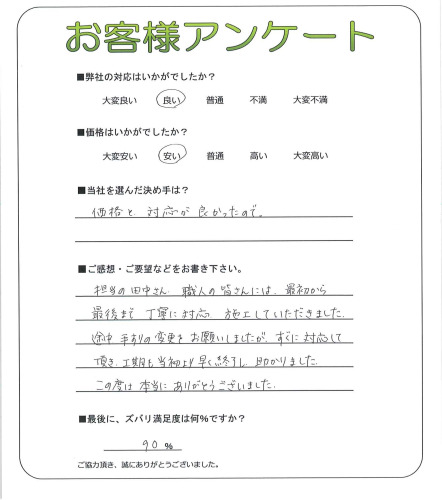 お客様アンケート
■弊社の対応はいかがでしたか？
大変良い 良い 普通 不満 大変不満
■価格はいかがでしたか？
大変安い 安い 普通 高い 大変高い
■当社を選んだ決め手は？
価格と対応が良かったので。
■ご感想・ご要望などをお書き下さい。
担当の田中さん、職人の皆さんには、最初から
最後まで丁寧に対応、施工していただきました。
途中手すりの変更をお願いしましたが、すぐに対応して
頂き、工期も当初より早く終了し、助かりました。
この度は本当にありがとうございました。
■最後に、ズバリ満足度は何％ですか？
90 %
ご協力頂き、誠にありがとうございました。